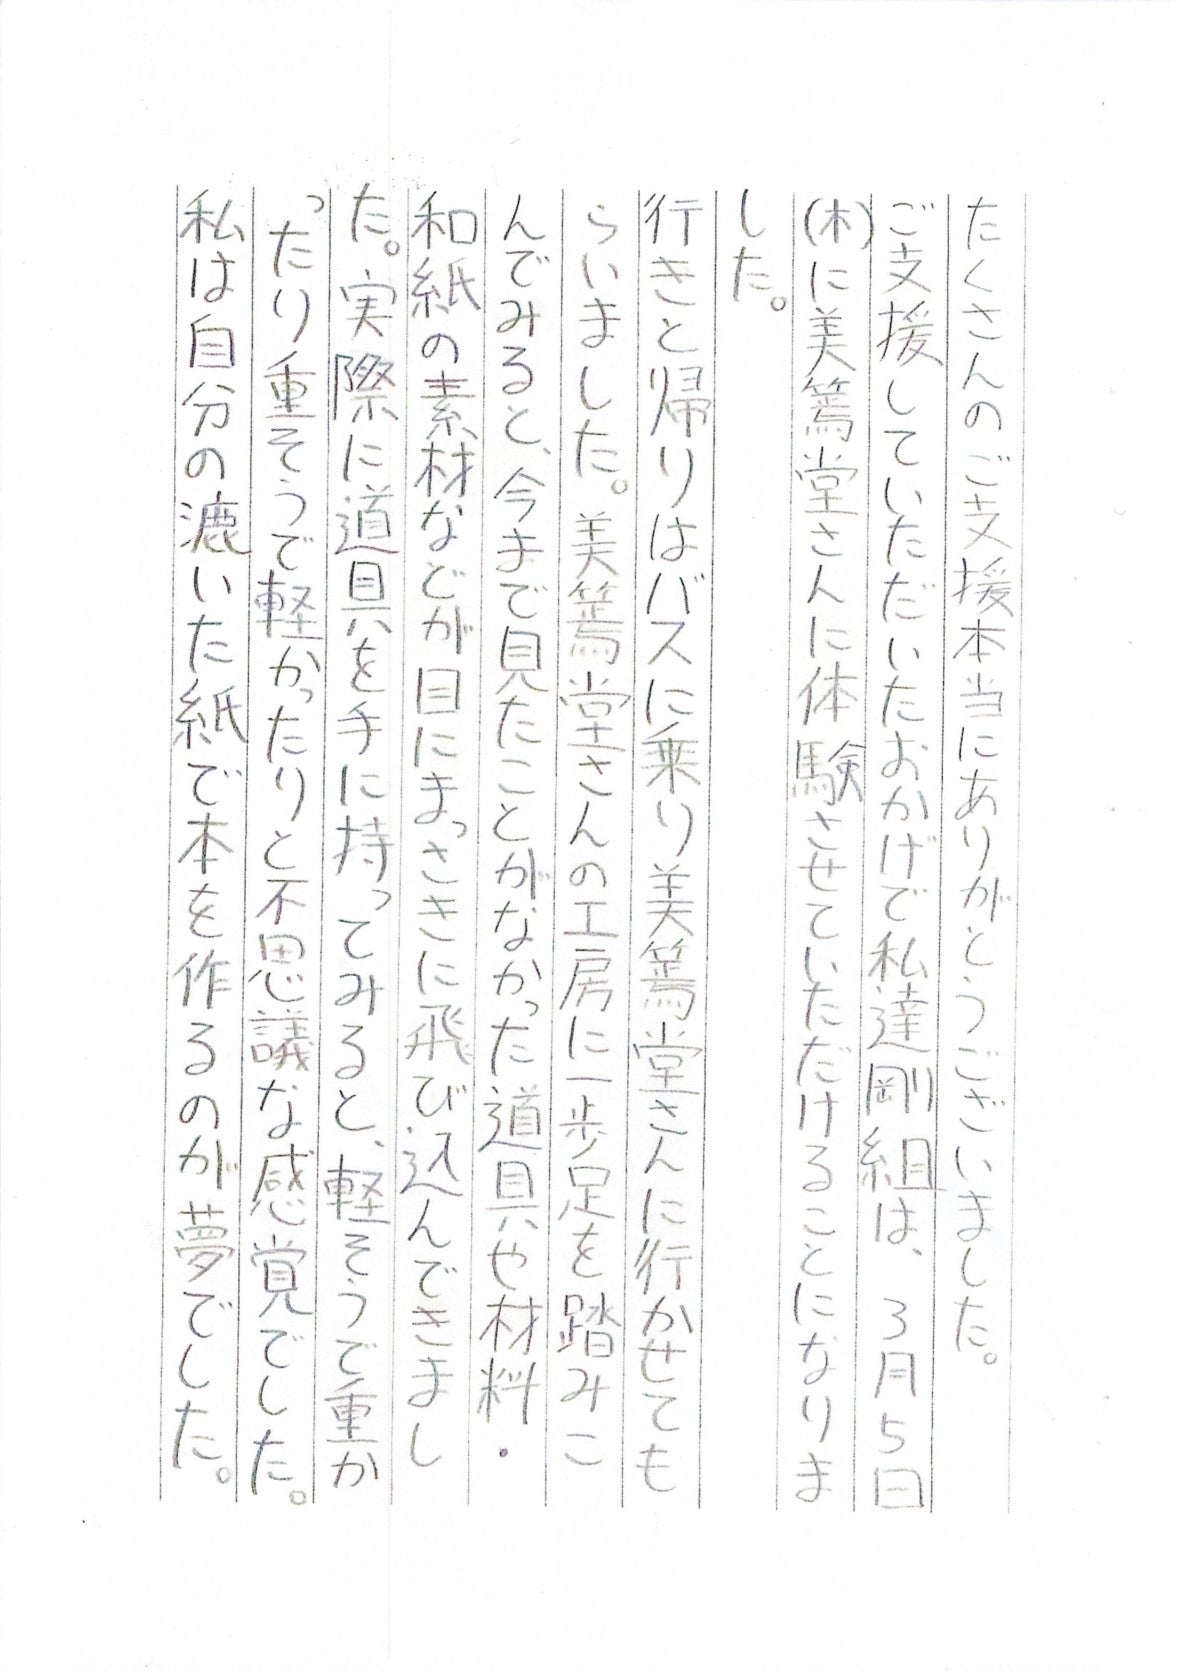 たくさんのご支援本当にありがとうございました。
ご支援していただいたおかげで私達剛組は、3月5日
(木)に美篶堂さんに体験させていただけることになりま
した。
行きと帰りはバスに乗り美篶堂さんに行かせても
らいました。美篶堂さんの工房に一歩足を踏みこ
んでみると、今まで見たことがなかった道具や材料・
和紙の素材などが目にまっさきに飛び込んできまし
た。実際に道具を手に持ってみると、軽そうで重か
ったり重そうで軽かったりと不思議な感覚でした。
私は自分の漉いた紙で本を作るのが夢でした。